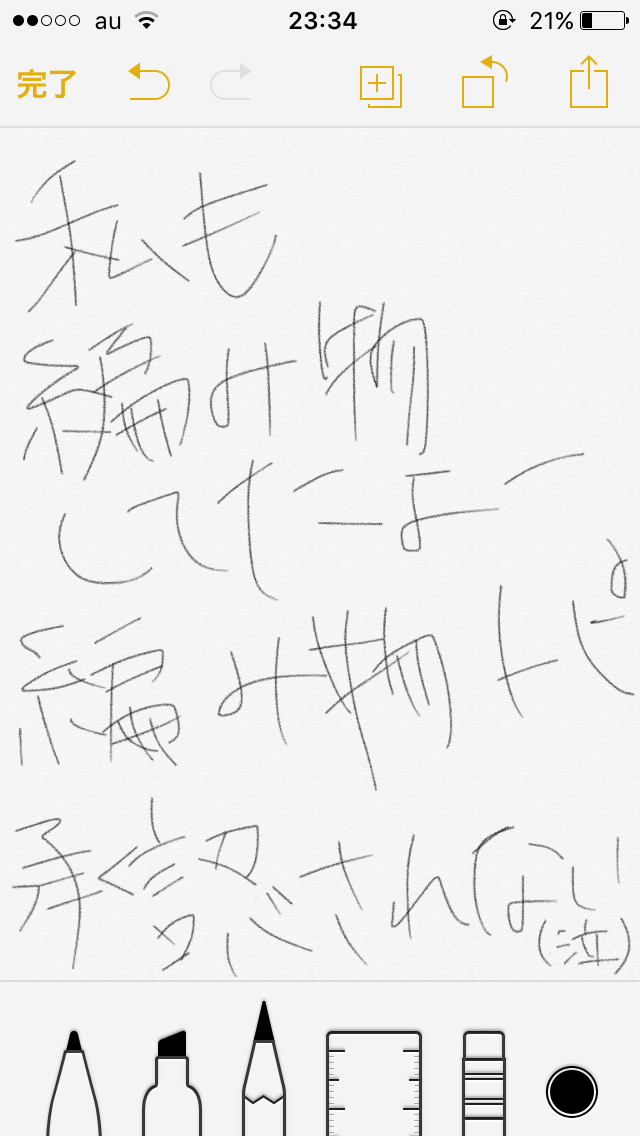 au 23:34 21%
完了
私も
編み物
してたよー
編み物トピ
承認されない
(泣)